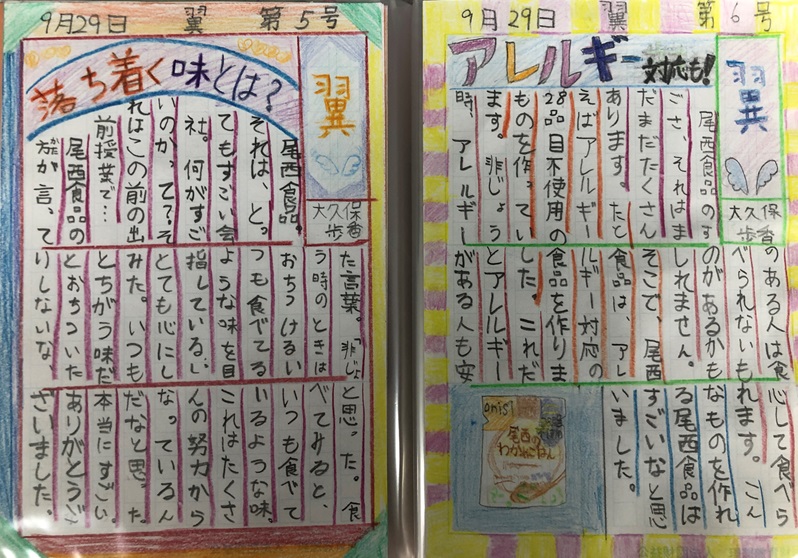 9月29日 翼 第5号
落ち着く味とは?
翼
大久保
歩香
尾西食品。
それは、とっ
てもすごい会
社。何がすご
いのか、って?そ
れはこの前の出
前授業で…
尾西食品の
方が言って
た言葉。「非じょ
う時のときは
おちつけるい
つも食べてる
ような味を目
指している。」
とても心にし
みた。いつも
とちがう味だ
とおちついた
りしないな、
と思った。食
べてみると、
いつも食べて
いるような味。
これはたくさ
んの努力から
なっているん
だなと思った。
本当にすごい
ありがとうご
ざいました。
9月29日 翼 第6号
アレルギー対応も!
翼
大久保
歩香
尾西食品のす
ごさ、それはま
だまだたくさん
あります。たと
えばアレルギー
28品目不使用の
ものを作ってい
ます。非じょう
時、アレルギー
のある人は食
べられないも
のがあるかも
しれません。
そこで、尾西
食品は、アレ
ルギー対応の
食品を作りま
した。これだ
とアレルギー
がある人も安
心して食べら
れます。こん
なものを作れ
る尾西食品は
すごいなと思
いました。
onisi
尾西の
わかめごはん